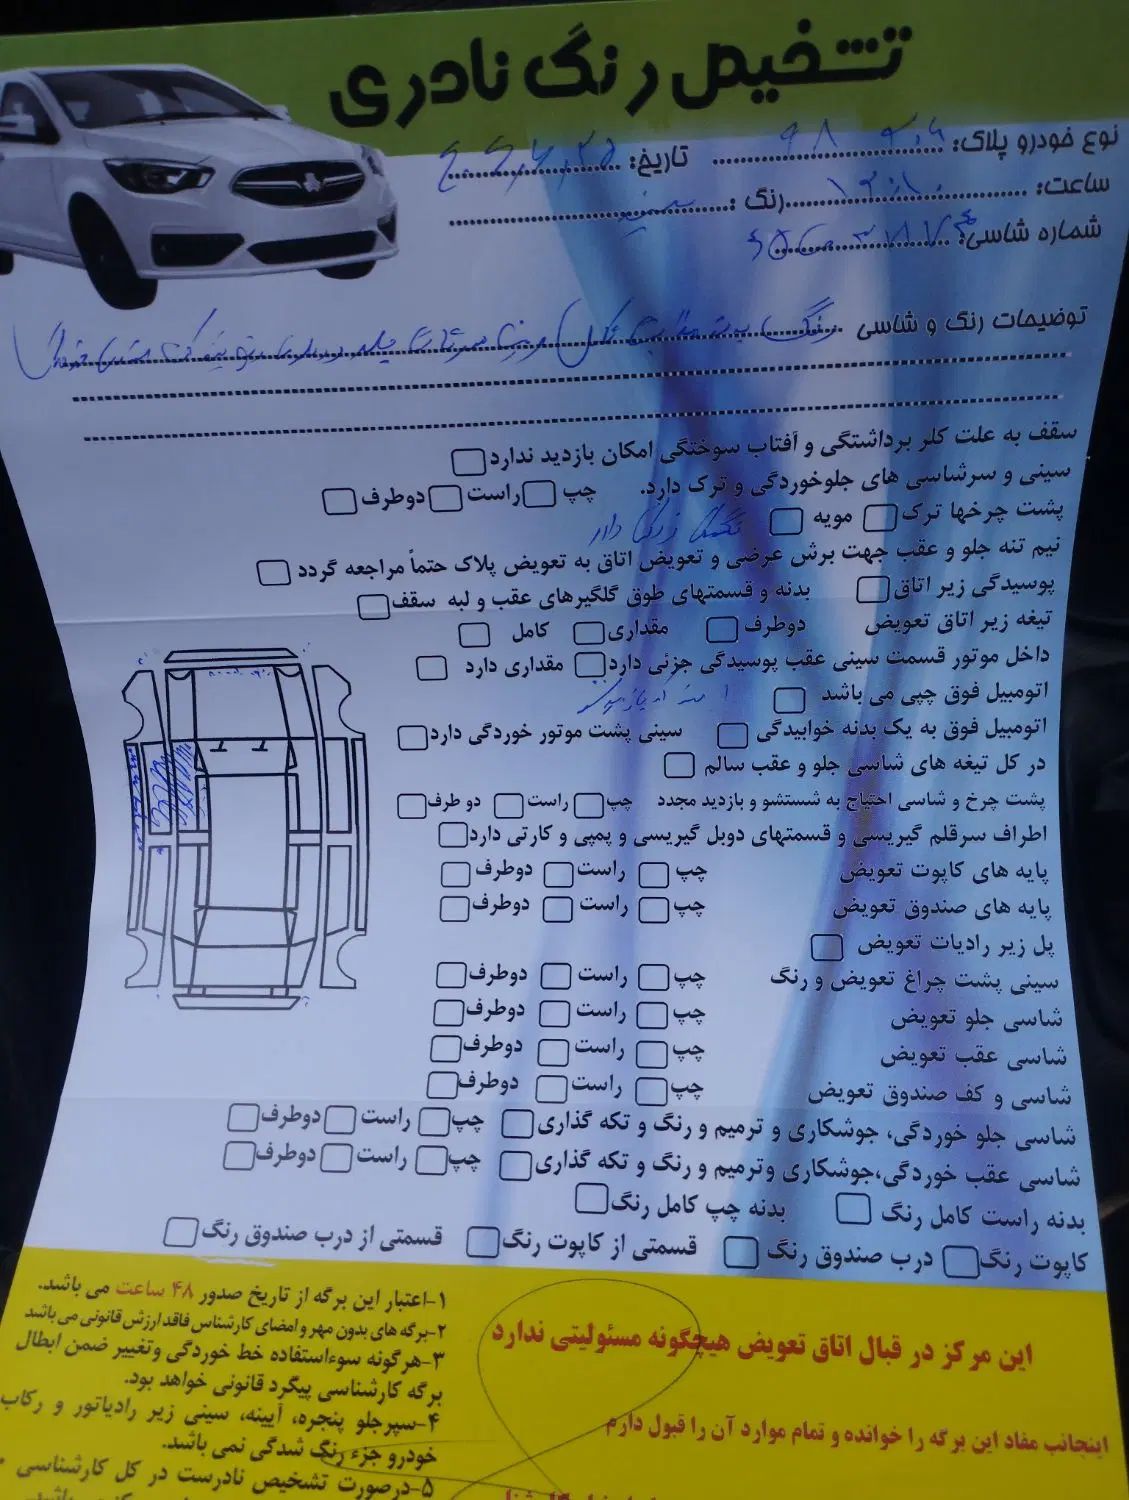 تشخیص رنگ نادری
نوع خودرو پلاک: تاریخ:
ساعت: رنگ:
شماره شاسی:
توضیحات رنگ و شاسی
سقف به علت کلر برداشتگی و آفتاب سوختگی امکان بازدید ندارد
سینی و سرشاسی های جلوخوردگی و ترک دارد. چپ راست دوطرف
پشت چرخها ترک مویه
نیم تنه جلو و عقب جهت برش عرضی و تعویض اتاق به تعویض پلاک حتماً مراجعه گردد
پوسیدگی زیر اتاق بدنه و قسمتهای طوق گلگیرهای عقب و لبه سقف
تیغه زیر اتاق تعویض دوطرف مقداری کامل
داخل موتور قسمت سینی عقب پوسیدگی جزئی دارد مقداری دارد
اتومبیل فوق چپی می باشد
اتومبیل فوق به یک بدنه خوابیدگی سینی پشت موتور خوردگی دارد
در کل تیغه های شاسی جلو و عقب سالم
پشت چرخ و شاسی احتیاج به شستشو و بازدید مجدد چپ راست دو طرف
اطراف سرقلم گیریسی و قسمتهای دوبل گیریسی و پمپی و کارتی دارد
پایه های کاپوت تعویض چپ راست دوطرف
پایه های صندوق تعویض چپ راست دوطرف
پل زیر رادیات تعویض
سینی پشت چراغ تعویض و رنگ چپ راست دوطرف
شاسی جلو تعویض چپ راست دوطرف
شاسی عقب تعویض چپ راست دوطرف
شاسی و کف صندوق تعویض چپ راست دوطرف
شاسی جلو خوردگی، جوشکاری و ترمیم و رنگ و تکه گذاری چپ راست دوطرف
شاسی عقب خوردگی،جوشکاری وترمیم و رنگ و تکه گذاری چپ راست دوطرف
بدنه راست کامل رنگ بدنه چپ کامل رنگ
کاپوت رنگ درب صندوق رنگ قسمتی از کاپوت رنگ قسمتی از درب صندوق رنگ
این مرکز در قبال اتاق تعویض هیچگونه مسئولیتی ندارد
اینجانب مفاد این برگه را خوانده و تمام موارد آن را قبول دارم
۱-اعتبار این برگه از تاریخ صدور ۴۸ ساعت می باشد.
۲-برگه های بدون مهر و امضای کارشناس فاقد ارزش قانونی می باشد
۳-هرگونه سوءاستفاده خط خوردگی وتغییر ضمن ابطال
برگه کارشناسی پیگرد قانونی خواهد بود.
۴-سپرجلو پنجره، آیینه، سینی زیر رادیاتور و رکاب
خودرو جزء رنگ شدگی نمی باشد.
۵-درصورت تشخیص نادرست در کل کارشناسی